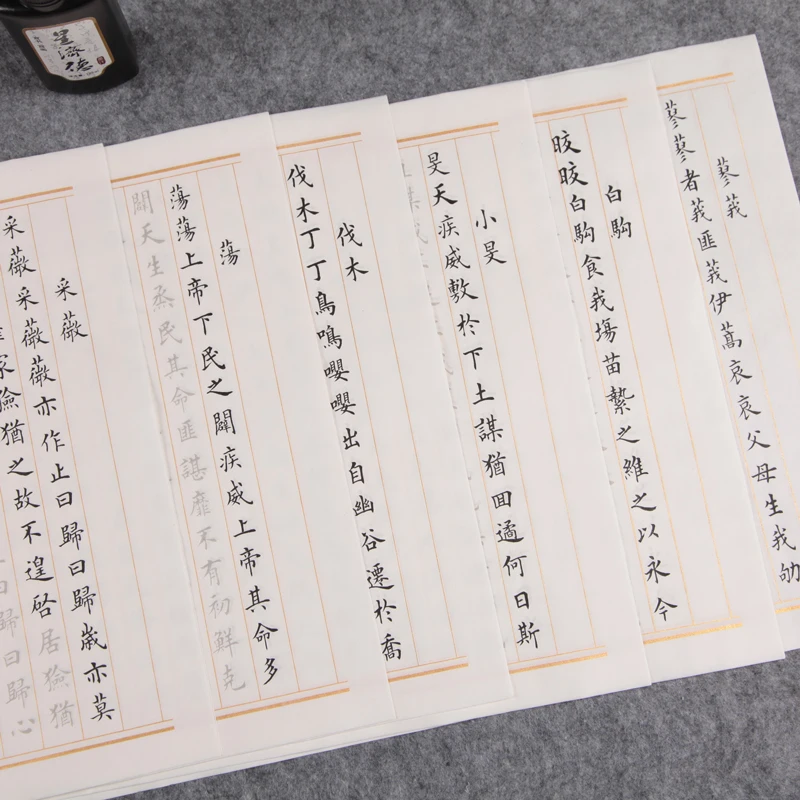 墨濟德
蓼莪
蓼蓼者莪匪莪伊蒿哀哀父母生我劬
白駒
皎皎白駒食我場苗縶之維之以永今
小旻
旻天疾威敷於下土謀猶回遹何日斯
伐木
伐木丁丁鳥鳴嚶嚶出自幽谷遷於喬
蕩
蕩蕩上帝下民之闢疾威上帝其命多
闢天生烝民其命匪諶靡不有初鮮克
采薇
采薇采薇薇亦作止曰歸曰歸歲亦莫
家獫猶之故不遑啓居獫猶
曰歸曰歸心